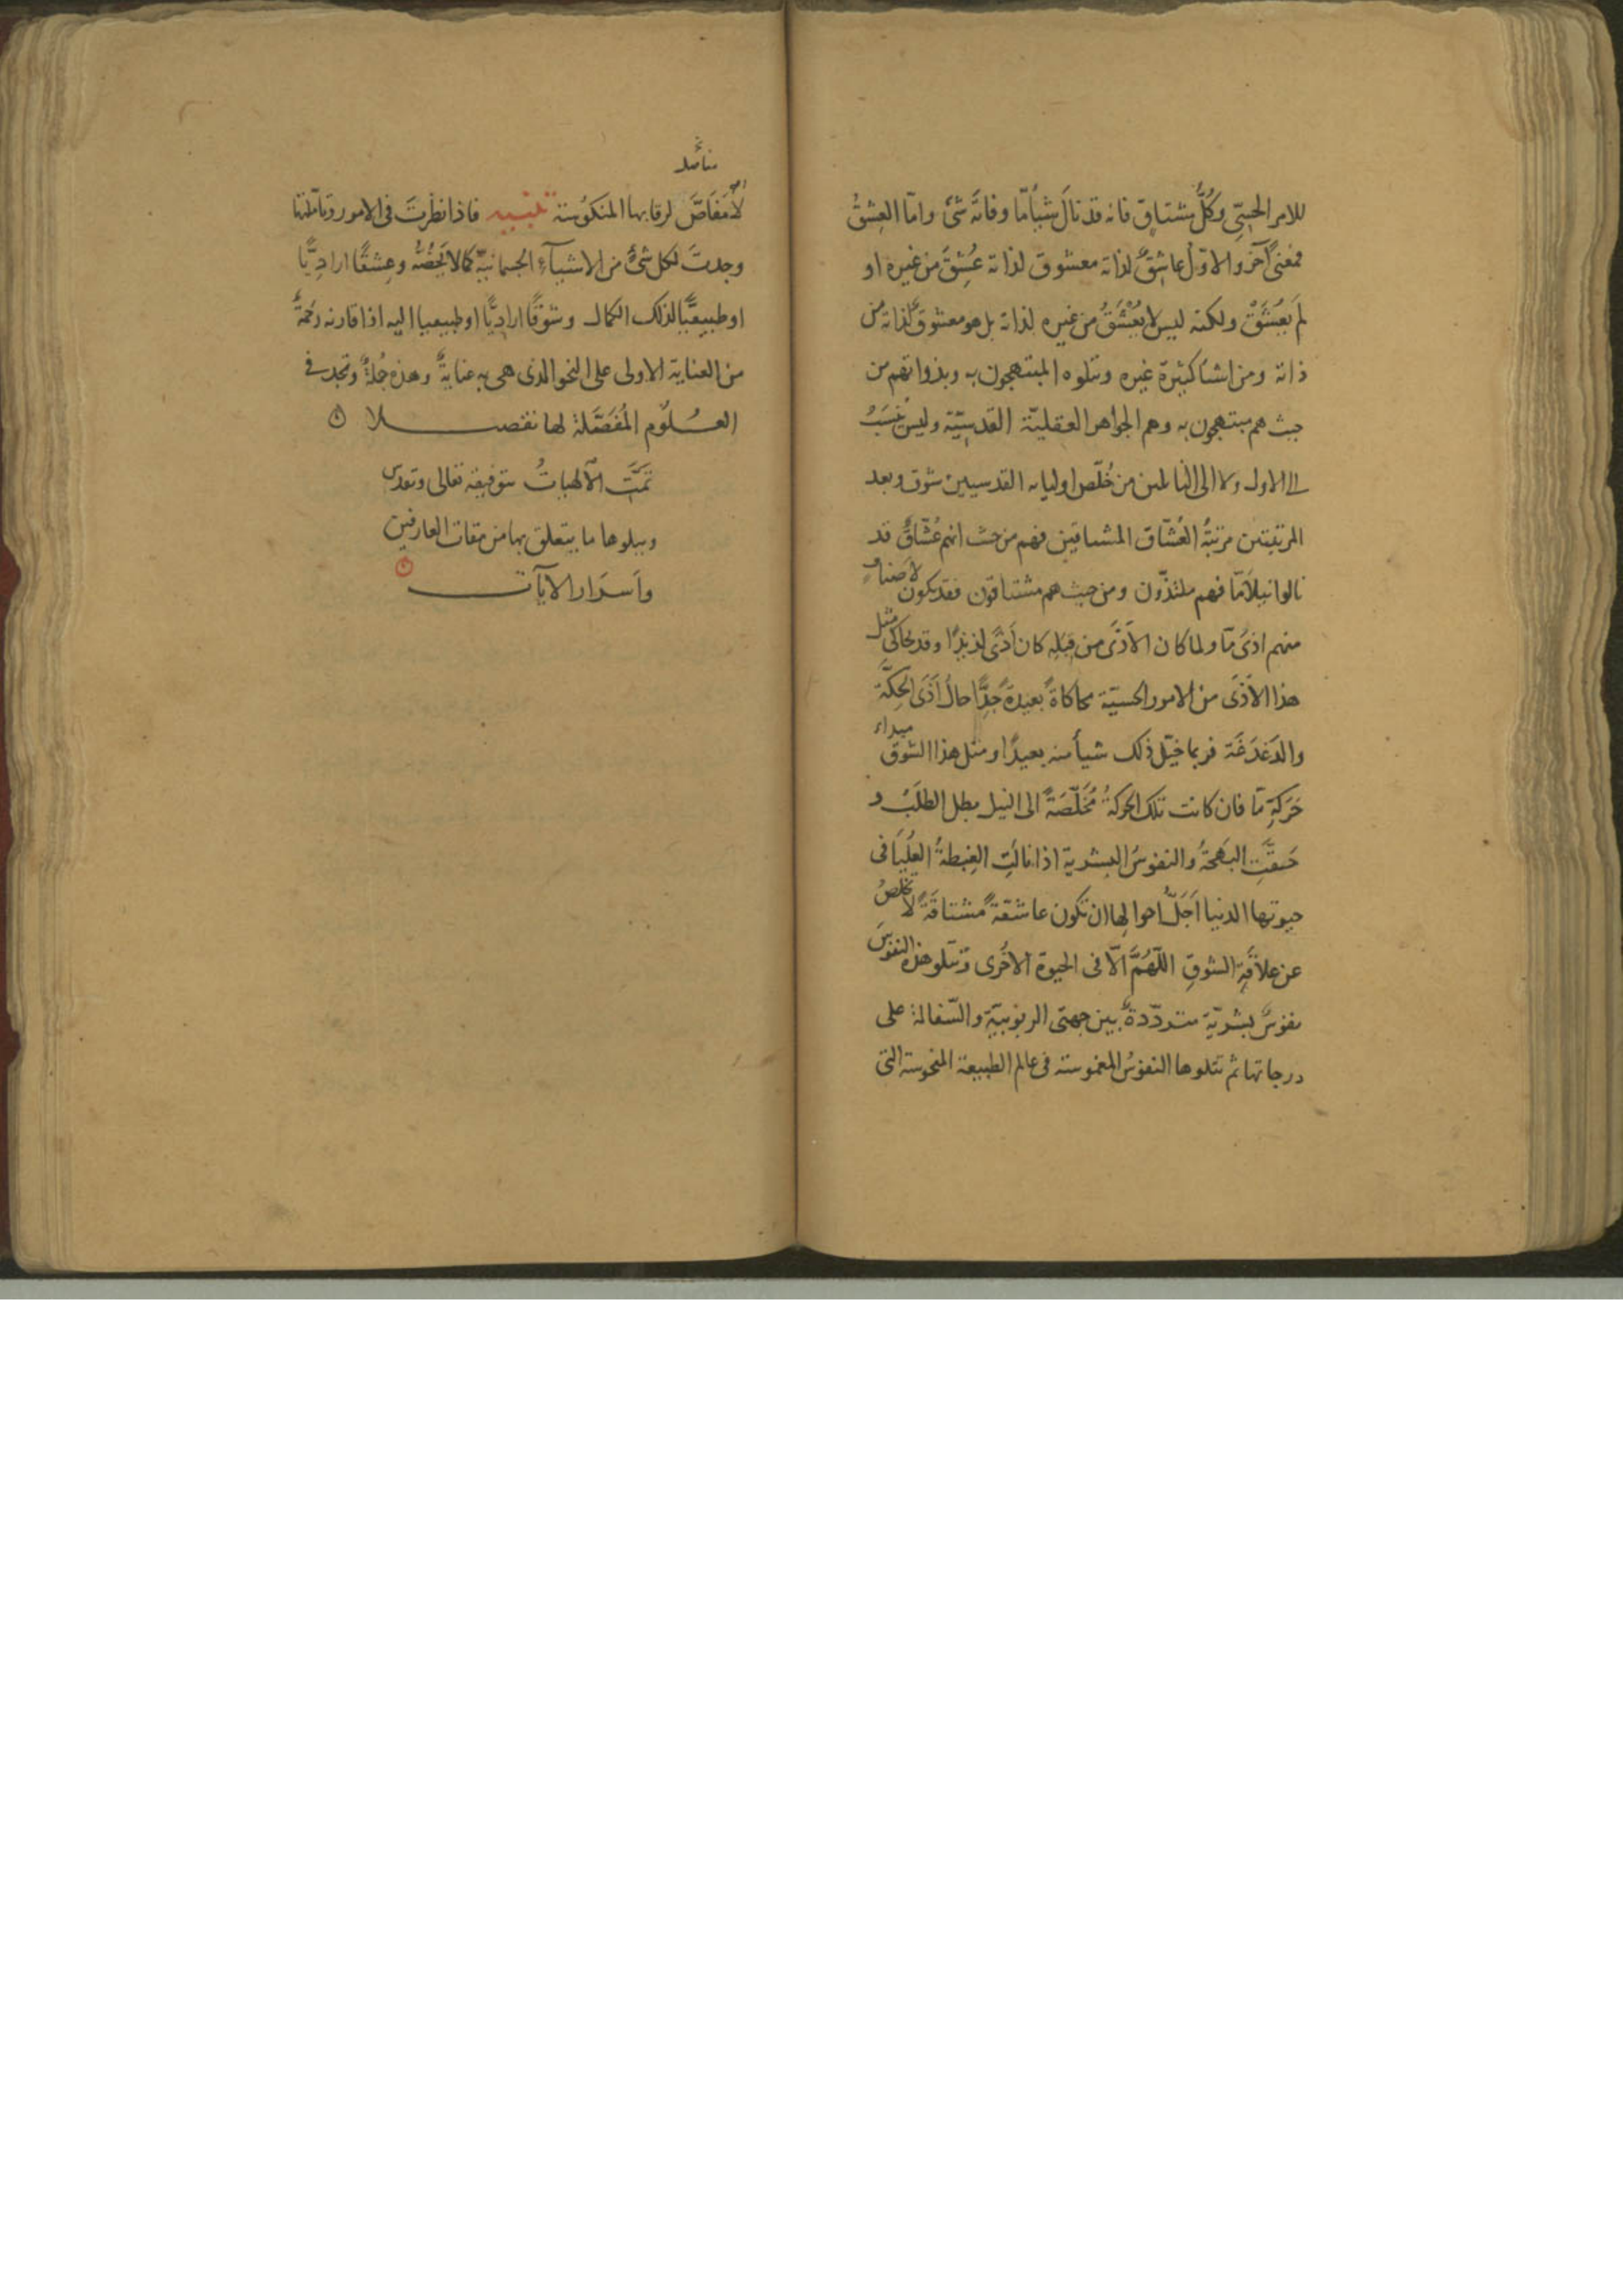 للامر الحسّى وكُلُّ مشتاق فانه قد نال شيأ مّا وفاته شئ وامّا العِشقُ
فمعنًى آخر والاوّل عاشقٌ لذاته معشوق لذاته عُشِقَ من غيره او
لم يُعشَقْ ولكنه ليس لا يُعْشَقُ من غيره لذاته بل هو معشوقٌ لذاته من
ذاته ومن اشيا كثيرة غيره وتتلوه المبتهجون به وبذواتهم من
حيث هم مبتهجون به وهم الجواهر العقليّة القدسيّة وليس يُنسَبُ
الى الاول ولا الى التالين من خُلّص اوليايه القدسيين شوق وبعد
المرتبتين مرتبةُ العُشّاق المشتاقين فهم من حيث انهم عُشّاقٌ قد
نالوا نيلاً مّا فهم ملتذّون ومن حيث هم مشتاقون فقد يكون لأصنافٍ
منهم اذىً مّا ولما كان الاَذَى من قِبَلِه كان أذًى لذيذًا وقد يحاكى مثل
هذا الاَذَى من الامور الحسيّة محاكاةً بعيدةً جدًّا حالُ اَذَى الحِكَّة
والدَغدَغَة فربما خيّل ذلك شيأ منه بعيدًا ومثل هذا الشوق مبداء
حَركةٍ مّا فان كانت تلك الحركةُ مُخَلِّصَةً الى النيل بطل الطلَبُ و
حَقَّتِ البَهجةُ والنفوسُ البشرية اذا نالتِ الغِبطةَ العُلْيَا فى
حيوتها الدنيا اَجَلُّ احوالها ان تكون عاشقةً مشتاقةً لا تخلصُ
عن علاقةِ الشوقِ اللّهُمَّ الّا فى الحيوة الاُخرى وتتلو هذه النفوسَ
نفوسٌ بشريّة متردّدةٌ بين جهتى الربوبيّة والسّفالة على
درجاتها ثم تتلوها النفوسُ المغموسة فى عالم الطبيعة المنحوسة التى
لا مَفَاصِلَ لرقابها المنكوُسة تنبيه فاذا نظرتَ فى الامور وتأمّلتها
وجدتَ لكل شئٍ من الاشيآءِ الجسمانيّة كمالا يَخُصُّه وعِشقًا اراديًّا
او طبيعيًّا لذلك الكمال وشوقًا اراديًّا او طبيعيا اليه اذا فارنه رحمةً
من العناية الاولى على النحو الذى هى به عنايةٌ وهذه جُملةٌ وتجد فى
العـلُوم المُفَصَّلة لها تفصـــيلا
تَمَّتِ الآلهياتُ بتوفيقه تعالى وتقدس
ويتلوها ما يتعلق بها من مقامات العارفين
واَسرَار الآيات